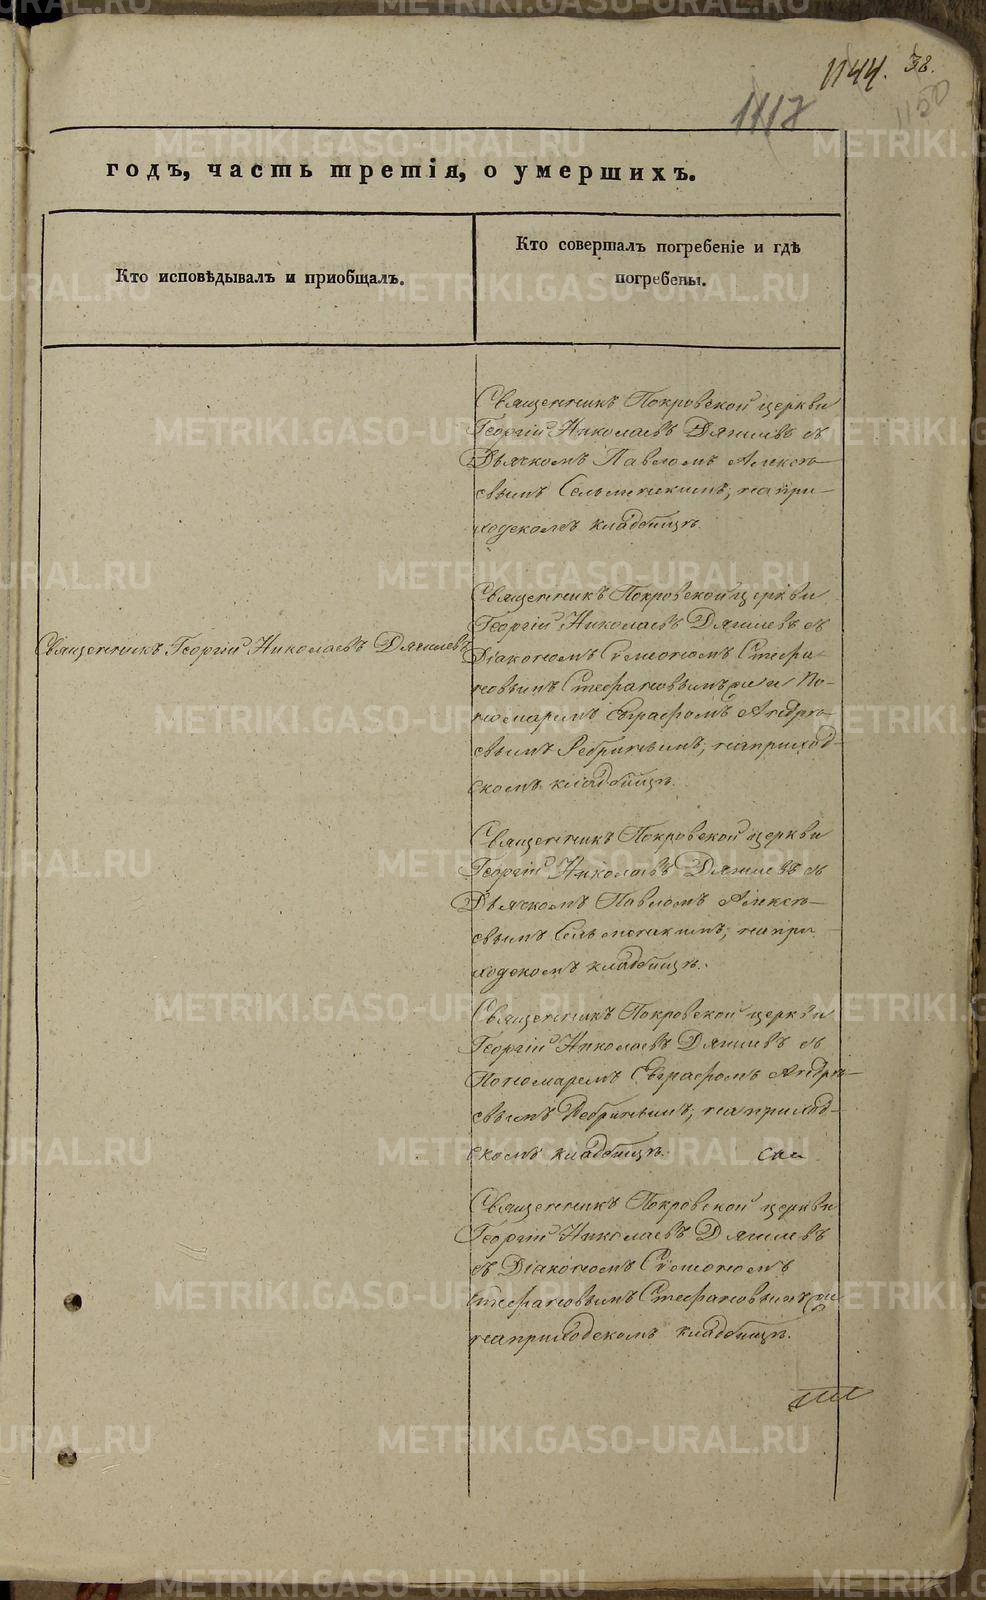 1144. 38.
1117
1150
годъ, часть третія, о умершихъ.
Кто исповѣдывалъ и приобщалъ.
Кто совершалъ погребеніе и гдѣ
погребены.
Священникъ Покровской церкви
Георгій Николаевъ Дягилевъ съ
Дьячкомъ Павломъ Алексѣ-
евымъ на при-
ходскомъ кладбищѣ
Священникъ Георгій Николаевъ Дягилевъ
Священникъ Покровской церкви
Георгій Николаевъ Дягилевъ съ
Діакономъ Симеономъ Стефа-
новымъ Стефановымъ и По-
номаремъ Евграфомъ Андре-
евымъ Ребринымъ; на приход-
скомъ кладбищѣ.
Священникъ Покровской церкви
Георгій Николаевъ Дягилевъ съ
Дьячкомъ Павломъ Алексѣ-
евымъ на при
ходскомъ кладбищѣ.
Священникъ Покровской церкви
Георгій Николаевъ Дягилевъ съ
Пономаремъ Евграфомъ Андре-
евымъ Ребринымъ; на приход-
скомъ кладбищѣ.
Священникъ Покровской церкви
Георгій Николаевъ Дягилевъ
съ Діакономъ Симеономъ
Стефановымъ Стефановымъ
на приходскомъ кладбищѣ.
METRIKI.GASO-URAL.RU